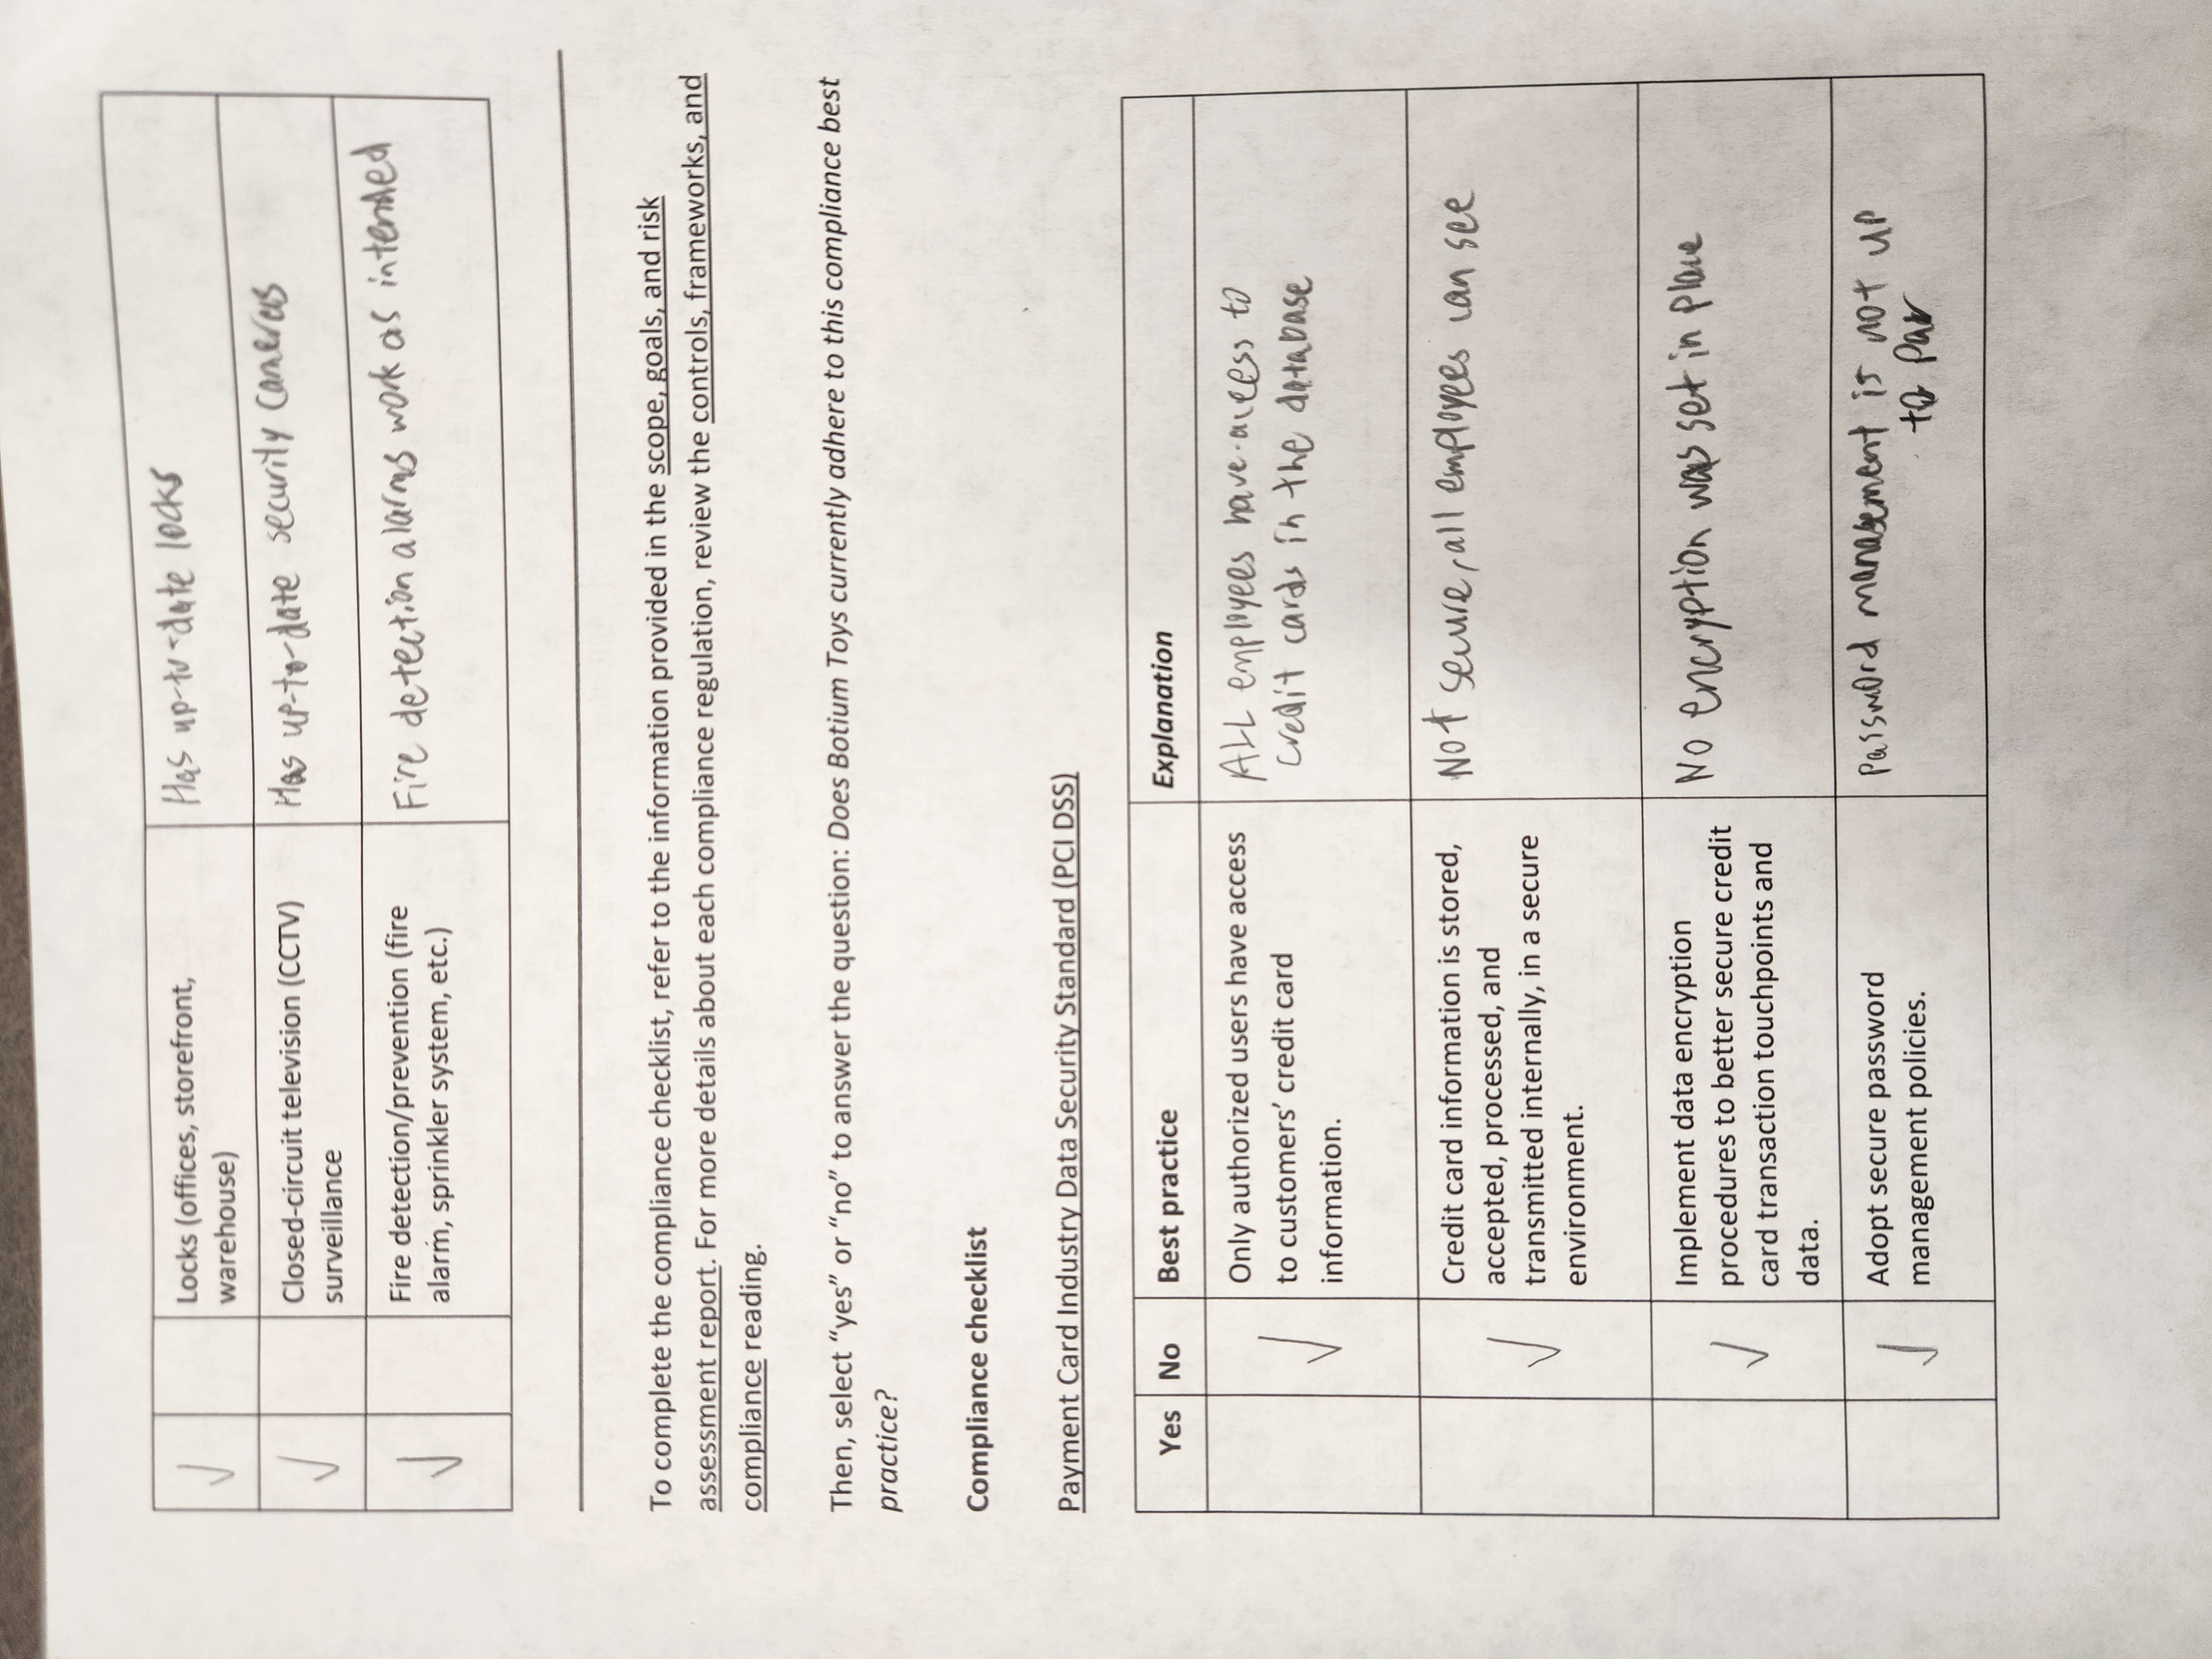 Locks (offices, storefront,
warehouse)
Has up-to-date locks
Closed-circuit television (CCTV)
surveillance
Has up-to-date security cameras
Fire detection/prevention (fire
alarm, sprinkler system, etc.)
Fire detection alarms work as intended
To complete the compliance checklist, refer to the information provided in the scope, goals, and risk
assessment report. For more details about each compliance regulation, review the controls, frameworks, and
compliance reading.
Then, select “yes” or “no” to answer the question: Does Botium Toys currently adhere to this compliance best
practice?
Compliance checklist
Payment Card Industry Data Security Standard (PCI DSS)
Yes No Best practice Explanation
Only authorized users have access
to customers’ credit card
information.
ALL employees have access to
credit cards in the database
Credit card information is stored,
accepted, processed, and
transmitted internally, in a secure
environment.
Not secure, all employees can see
Implement data encryption
procedures to better secure credit
card transaction touchpoints and
data.
No encryption was set in place
Adopt secure password
management policies.
Password management is not up
to par